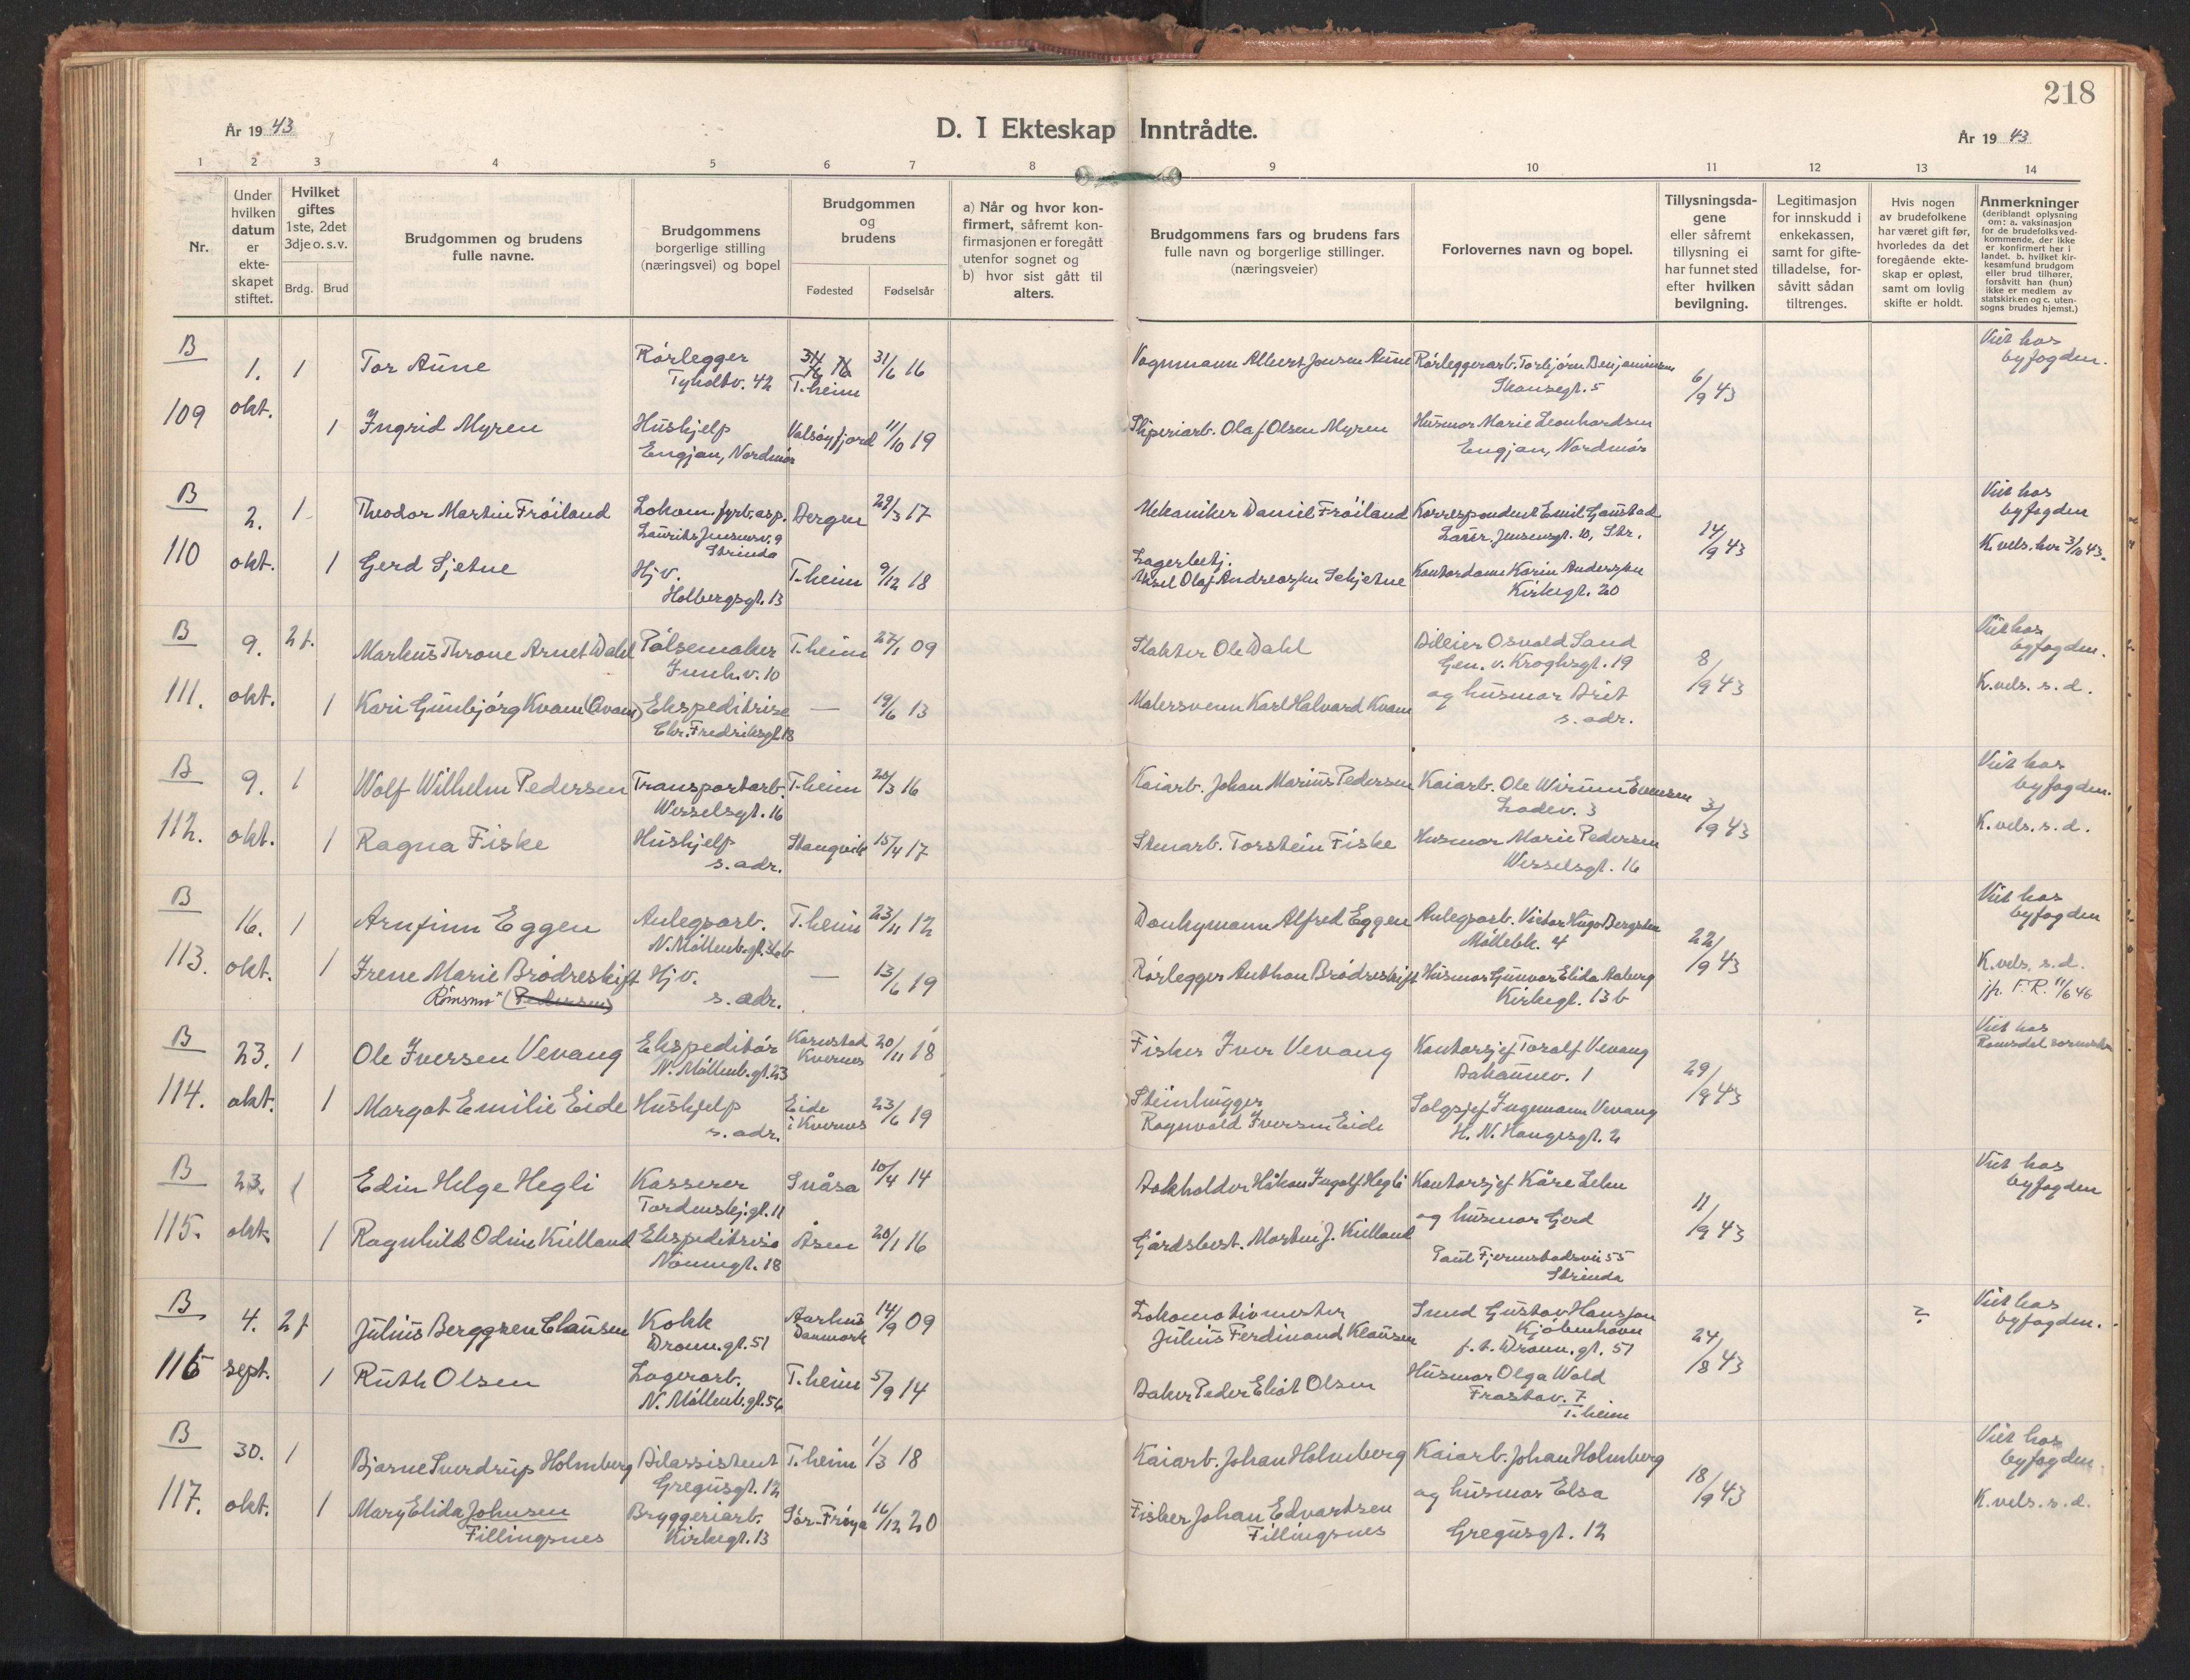 218
År 1943
D. I Ekteskap Inntrådte.
År 1943
1 2 3 4 5 6 7 8 9 10 11 12 13 14
Nr.
Under hvilken datum er ekteskapet stiftet.
Hvilket giftes 1ste, 2det 3dje o. s. v.
Brdg. Brud
Brudgommen og brudens fulle navne.
Brudgommens borgerlige stilling (næringsvei) og bopel
Brudgommen og brudens
Fødested Fødselsår
a) Når og hvor konfirmert, såfremt konfirmasjonen er foregått utenfor sognet og b) hvor sist gått til alters.
Brudgommens fars og brudens fars fulle navn og borgerlige stillinger. (næringsveier)
Forlovernes navn og bopel.
Tillysningsdagene eller såfremt tillysning ei har funnet sted efter hvilken bevilgning.
Legitimasjon for innskudd i enkekassen, samt for giftetilladelse, forsåvitt sådan tiltrenges.
Hvis nogen av brudefolkene har været gift før, hvorledes da det foregående ekteskap er opløst, samt om lovlig skifte er holdt.
Anmerkninger (deriblandt oplysning om: a. vaksinasjon for de brudefolks vedkommende, der ikke er konfirmert her i landet. b. hvilket kirkesamfund brudgom eller brud tilhører, forsåvitt han (hun) ikke er medlem av statskirken og c. utensogns brudes hjemst.)
B
109
1. okt.
1 Tor Aune Rørlegger Tyholtv. 42 T.heim 31/6 16
Vognmann Albert Jensen Aune
Rørleggerarb. Torbjørn Benjaminsen
6/9 43
Viet hos byfogden.
1 Ingrid Myren Hushjelp Engjan, Nordmør Valsøyfjord 11/10 19
Olaf Olsen Myren
Husmor Marie Leonhardsen Engjan, Nordmør
B
110
2. okt.
1 Theodor Martin Frøiland Lokom. fyrb. asp. Laurits Jensensv. 9 Strinda Bergen 29/3 17
Mekaniker Daniel Frøiland
Korrespondent Emil Gaustad Laur. Jensensgt. 10, Str.
14/9 43
Viet hos byfogden
K. vels. her 3/10 43.
1 Gerd Sjetne Hjv. Holbergsgt. 13 T.heim 9/12 18
Lagerbetj. Aksel Olaf Andreassen Schjetne
Kontordame Karin Anderssen Kirkegt. 20
B
111.
9. okt.
2f. Markus Throne Arnet Dahl Pølsemaker Innh.v. 10 T.heim 27/1 09
Slakter Ole Dahl
Billeier Osvald Sand Gen. v. Kroghsgt. 19
8/9 43
Viet hos byfogden.
K. vels. s. d.
1 Kari Gunbjørg Kvam (Qvam) Ekspeditrise Chr. Fredriksgt. 18 — 19/6 13
Malersvenn Karl Halvard Kvam
og husmor Brit s. adr.
B
112.
9. okt.
1 Wolf Wilhelm Pedersen Transportarb. Wesselsgt. 16 T.heim 20/3 16
Kaiarb. Johan Marius Pedersen
Kaiarb. Ole Evensen Ladev. 3
3/9 43
Viet hos byfogden.
K. vels. s. d.
1 Ragna Fiske Hushjelp s. adr. Stangvik 15/4 17
Stenarb. Torstein Fiske
Husmor Marie Pedersen Wesselsgt. 16
B
113.
16. okt.
1 Arnfinn Eggen Anlegsarb. N. Møllenb.gt. 36 b T.heim 23/11 12
Donkymann Alfred Eggen
Anlegsarb. Victor Hugo Bergsten Møllebk. 4
22/9 43
Viet hos byfogden
K. vels. s. d.
jfr. F. R. 11/6 46
1 Irene Marie Brødreskift Hjv. s. adr. — 13/6 19
(Pedersen)
Rørlegger Anthon Brødreskift
Husmor Gunvor Elida Aaberg Kirkegt. 13 b
B
114.
23. okt.
1 Ole Iversen Vevang Ekspeditør N. Møllenb.gt. 23 Kornstad Kvernes 20/11 18
Fisker Iver Vevang
Kontorsjef Toralf Vevang Bakaunev. 1
29/9 43
Viet hos Romsdal sorenskr.
1 Margot Emilie Eide Hushjelp s. adr. Eide i Kvernes 23/6 19
Steinhugger Ragnvald Iversen Eide
Salgsjef Ingemann Vevang H. N. Haugesgt. 2
B
115.
23. okt.
1 Edin Helge Hegli Kasserer Tordenskj.gt. 11 Snåsa 10/4 14
Bokholder Håkon Ingolf Hegli
Kontorsjef Kåre Lehn
11/9 43
Viet hos byfogden
1 Ragnhild Odine Kielland Ekspeditrise Nonnegt. 18 Åsen 20/1 16
Gårdsbest. Martin J. Kielland
og husmor Gerd
Paul Fjermstadsvei 55 Strinda
B
116
4. sept.
2f Julius Berggren Clausen Kokk Dronn. gt. 51 Aarhus Danmark 14/9 09
Lokomotivmester Julius Ferdinand Klausen
Smed Gustav Hansson Kjøbenhavn f. t. Dronn. gt. 51
24/8 43
?
Viet hos byfogden.
1 Ruth Olsen Lagerarb. N. Møllenb.gt. 56 T.heim 5/9 14
Baker Peder Eliot Olsen
Husmor Olga Wold Frostav. 7 T.heim
B
117.
30. okt.
1 Bjarne Sverdrup Holmberg Bilassistent Gregusgt. 12 T.heim 1/3 18
Kaiarb. Johan Holmberg
Kaiarb. Johan Holmberg
18/9 43
Viet hos byfogden.
K. vels. s. d.
1 Mary Elida Johnsen Fillingsnes Bryggeriarb. Kirkegt. 13 Sør-Frøya 16/12 20
Fisker Johan Edvartsen Fillingsnes
og husmor Elsa Gregusgt. 12